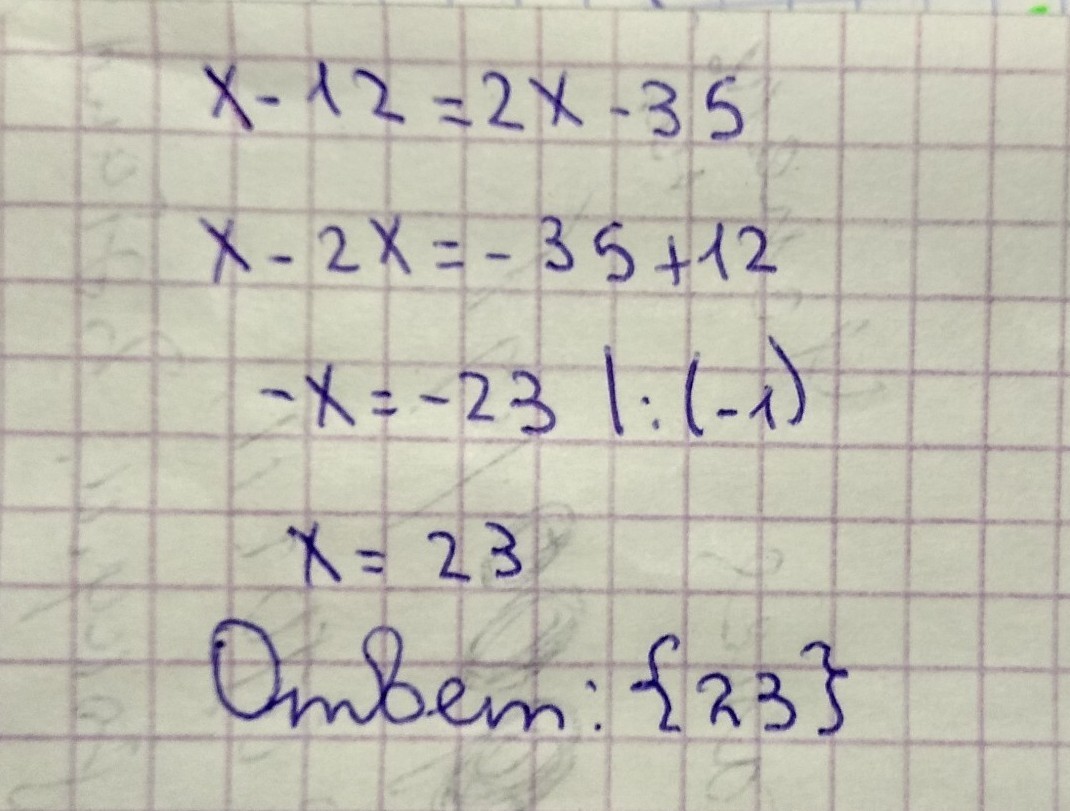 x - 12 = 2x - 35
x - 2x = - 35 + 12
-x = -23 | : (-1)
x = 23
Ответ: {23}